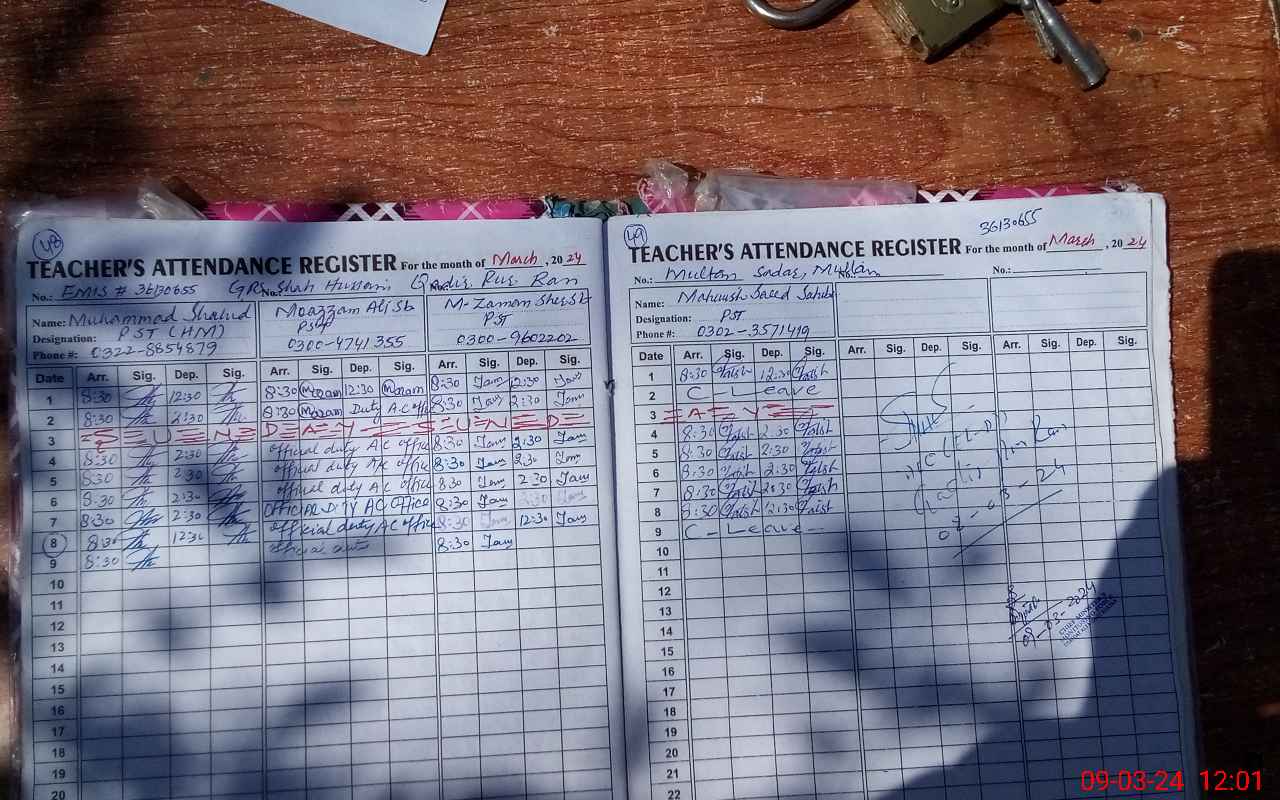 48
TEACHER'S ATTENDANCE REGISTER For the month of March, 2024
No.: EMIS # 36130655 GPS Shah Hussain, Qadir Pur Ran
Name: Muhammad Shahid Moazzam Ali Sb M. Zaman Sher Sb
Designation: PST (HM) PST PST
Phone #: 0322-8854879 0300-4741355 0300-9602202
Date Arr. Sig. Dep. Sig. Arr. Sig. Dep. Sig. Arr. Sig. Dep. Sig.
1 8:30 12:30 8:30 12:30 8:30 12:30
2 8:30 2:30 8:30 Duty A.C offi 8:30 2:30
3 S U N D A Y S U N D
4 8:30 2:30 official duty A C office 8:30 2:30
5 8:30 2:30 official duty A C office 8:30 2:30
6 8:30 2:30 official duty A C office 8:30 2:30
7 8:30 2:30 OFFICIAL DUTY AC OFFICE 8:30 2:30
8 8:30 12:30 official duty A C office 8:30 12:30
9 8:30 official duty 8:30
10
11
12
13
14
15
16
17
18
19
20
49
36130655
TEACHER'S ATTENDANCE REGISTER For the month of March, 2024
No.: Multan Sadar, Multan No.: No.:
Name: Mahwish Saeed Sahiba
Designation: PST
Phone #: 0302-3571419
Date Arr. Sig. Dep. Sig. Arr. Sig. Dep. Sig. Arr. Sig. Dep. Sig.
1 8:30 12:30
2 C - Leave
3 A Y
4 8:30 2:30
5 8:30 2:30
6 8:30 2:30
7 8:30 2:30
8 8:30 12:30
9 C - Leave
10
11
12
13
14
15
16
17
18
19
20
21
22
08-03-24
09-03-2024
09-03-24 12:01